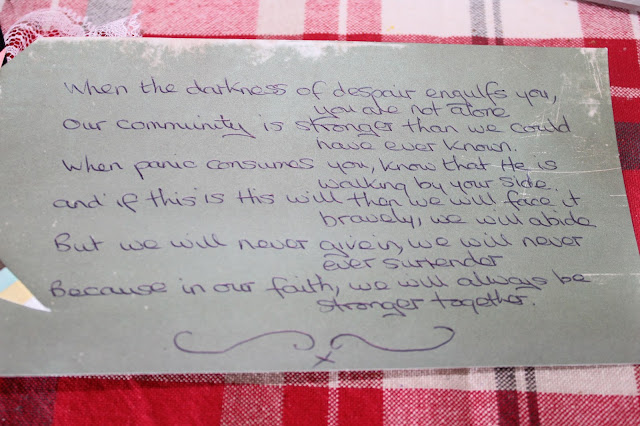 When the darkness of despair engulfs you,
you are not alone
Our community is stronger than we could
have ever known.
When panic consumes you, know that He is
walking by your side.
and if this is His will then we will face it
bravely, we will abide
But we will never give in, we will never
ever surrender
Because in our faith, we will always be
stronger together.
x